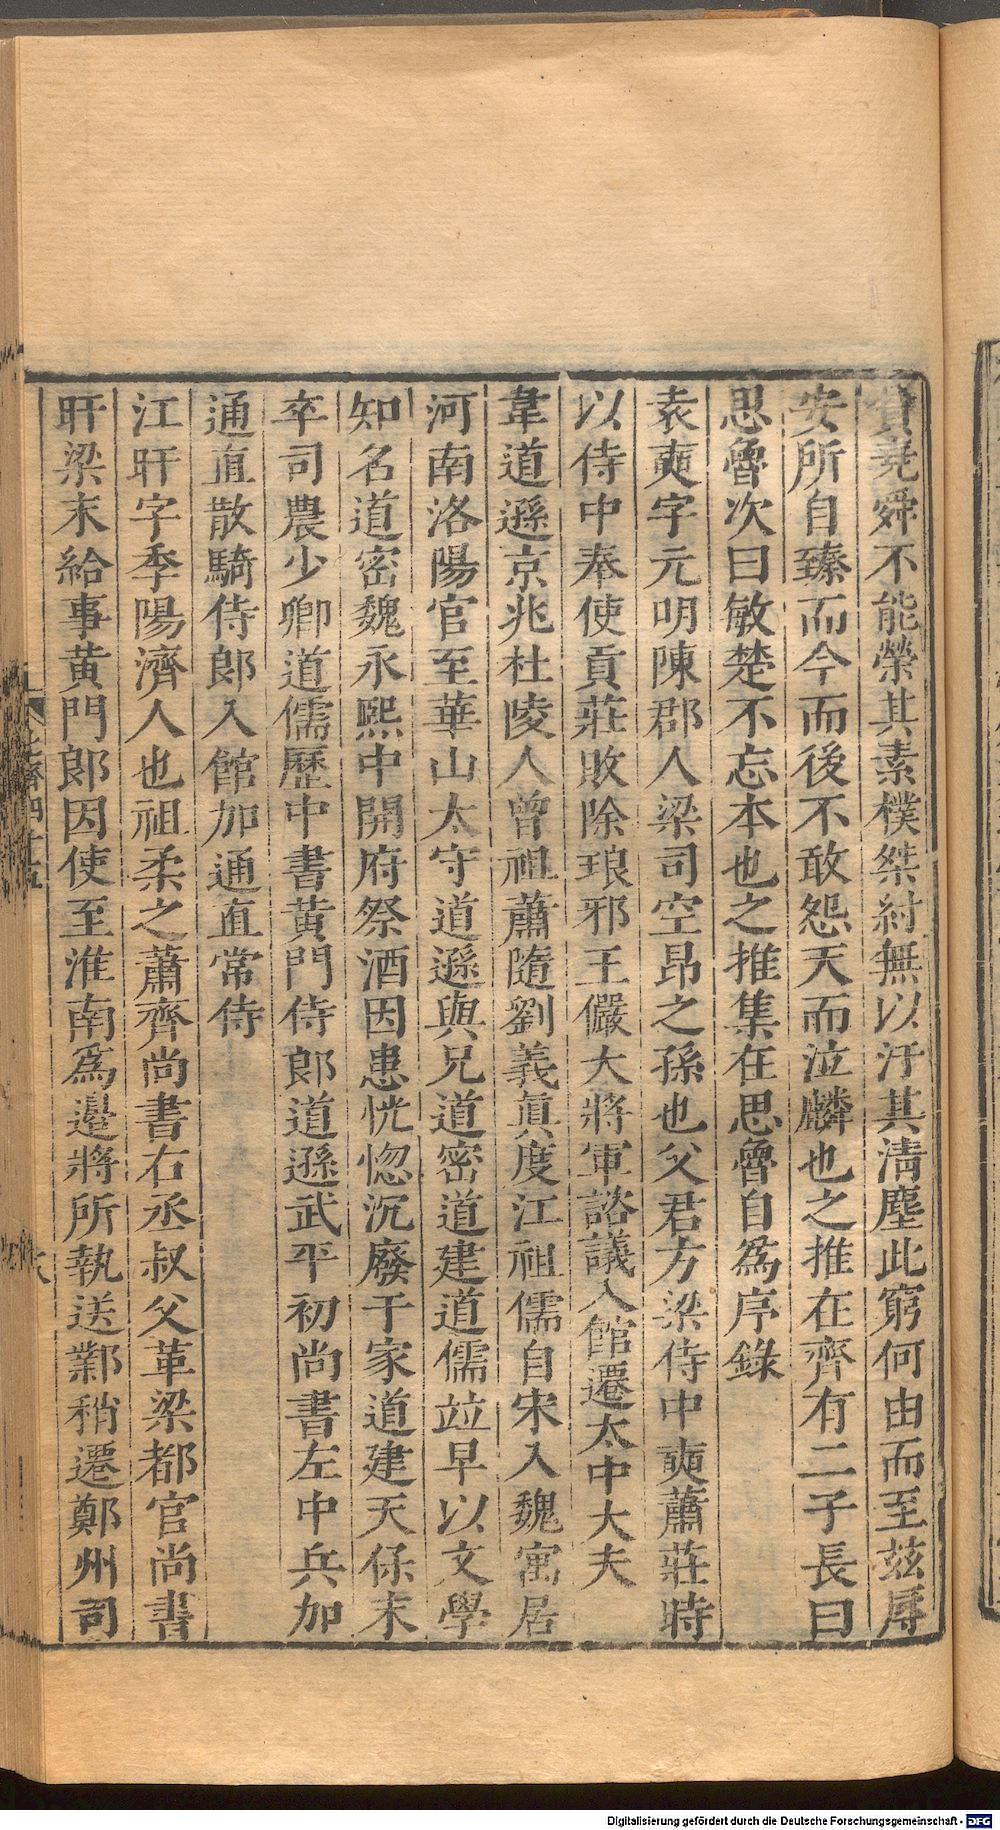 寶堯舜不能榮其素樸桀紂無以汙其清塵此窮何由而至茲辱
安所自臻而今而後不敢怨天而泣麟也之推在齊有二子長曰
思魯次曰敏楚不忘本也之推集在思魯自爲序錄
袁奭字元明陳郡人梁司空昂之孫也父君方梁侍中奭蕭莊時
以侍中奉使貢莊敗除琅邪王儼大將軍諮議入館遷太中大夫
韋道遜京兆杜陵人曾祖蕭隨劉義真度江祖儒自宋入魏寓居
河南洛陽官至華山太守道遜與兄道密道建道儒竝早以文學
知名道密魏永熙中開府祭酒因患恍惚沉廢于家道建天保末
卒司農少卿道儒歷中書黃門侍郎道遜武平初尚書左中兵加
通直散騎侍郎入館加通直常侍
江旰字季陽濟人也祖柔之蕭齊尚書右丞叔父革梁都官尚書
旰梁末給事黃門郎因使至淮南爲邊將所執送鄴稍遷鄭州司
北齊四十五
六
Digitalisierung gefördert durch die Deutsche Forschungsgemeinschaft - DFG